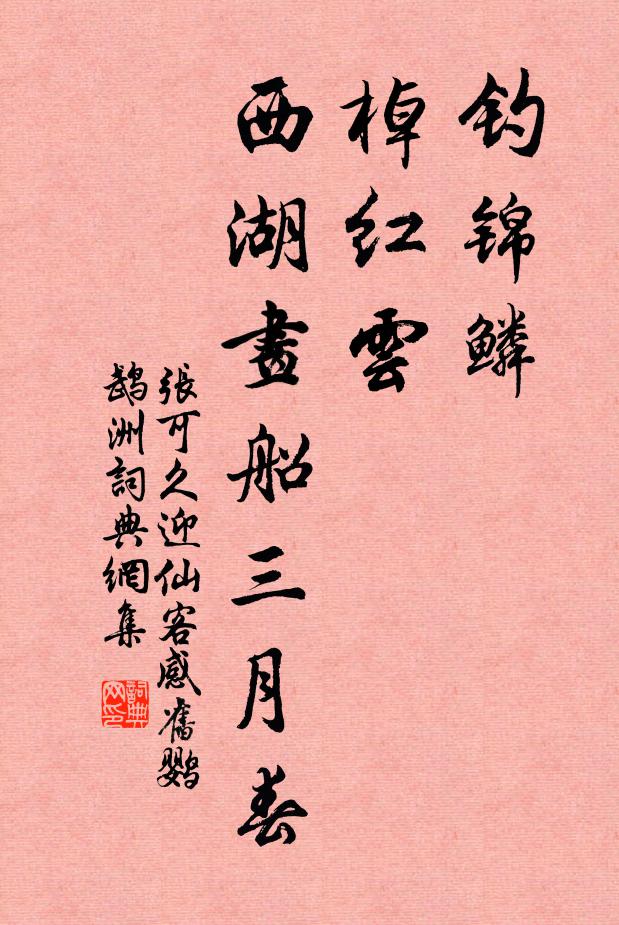 钓锦鳞
棹红雲
西湖畫船三月春
張可久迎仙客感舊鹦
鵡洲詞典網集
詞典网印